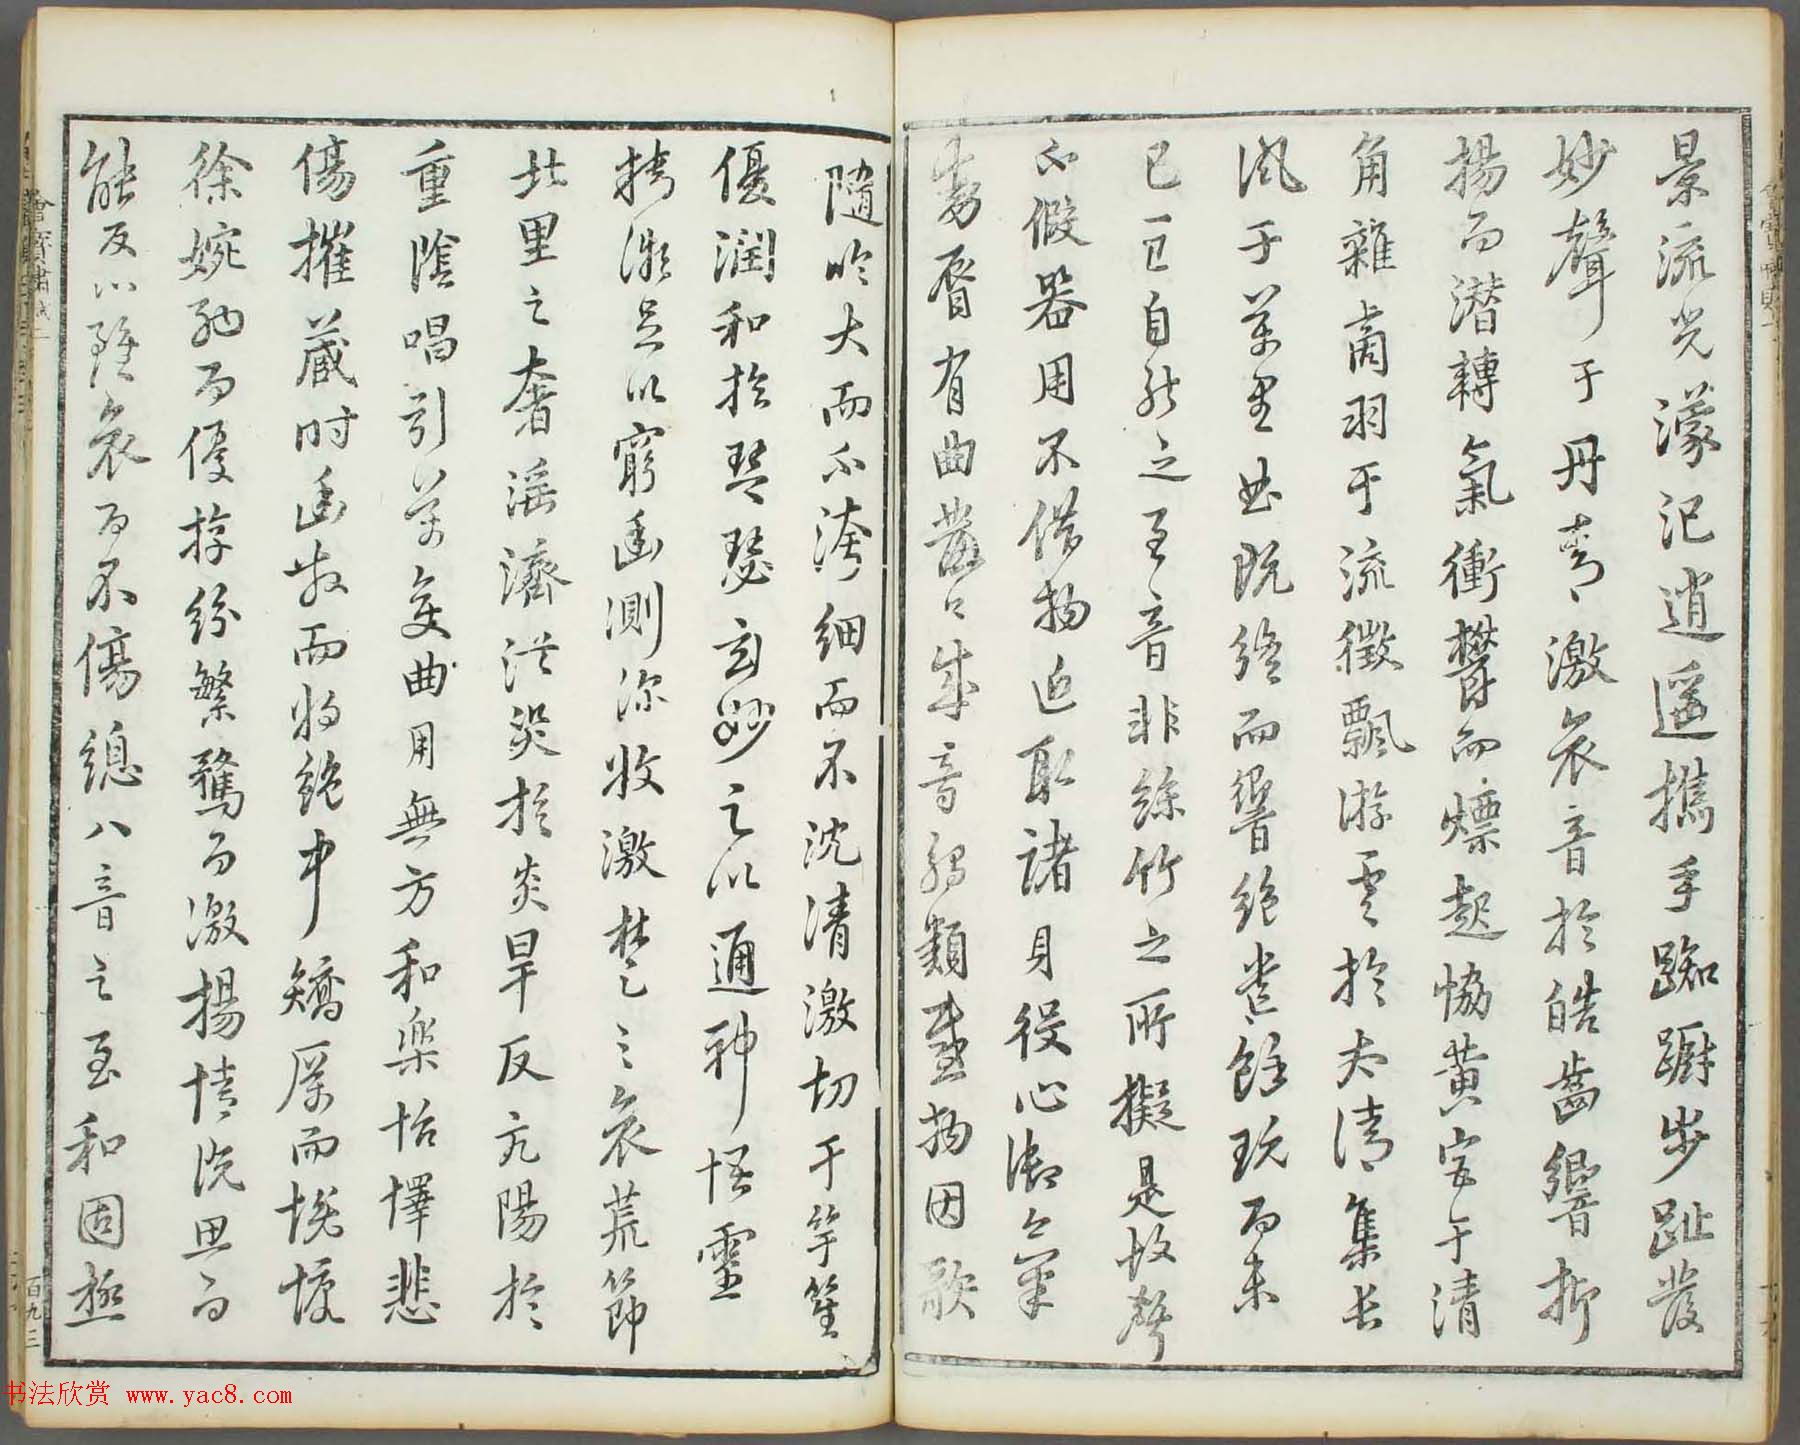 景流光濛汜逍遥攜手踟蹰步趾發
妙聲于丹唇激哀音於皓齒響抑
揚而潛轉氣衝鬱而熛起協黃宮于清
角雜商羽于流徵飄游雲於太清集長
風于萬里曲既終而響絕遺餘玩而未
已良自然之至音非絲竹之所擬是故聲
不假器用不借物近取諸身役心御氣
動脣有曲發口成音觸類感物因歌
隨吟大而不洿細而不沈清激切于竽笙
優潤和於琴瑟玄妙足以通神悟靈
精微足以窮幽測深收激楚之哀荒節
北里之奢淫濟洪災於炎旱反亢陽於
重陰唱引萬變曲用無方和樂怡懌悲
傷摧藏時幽散而將絕中矯厲而慨慷
徐婉約而優游紛繁騖而激揚情既思而
能反心雖哀而不傷總八音之至和固極
百九三
书法欣赏 www.yac8.com